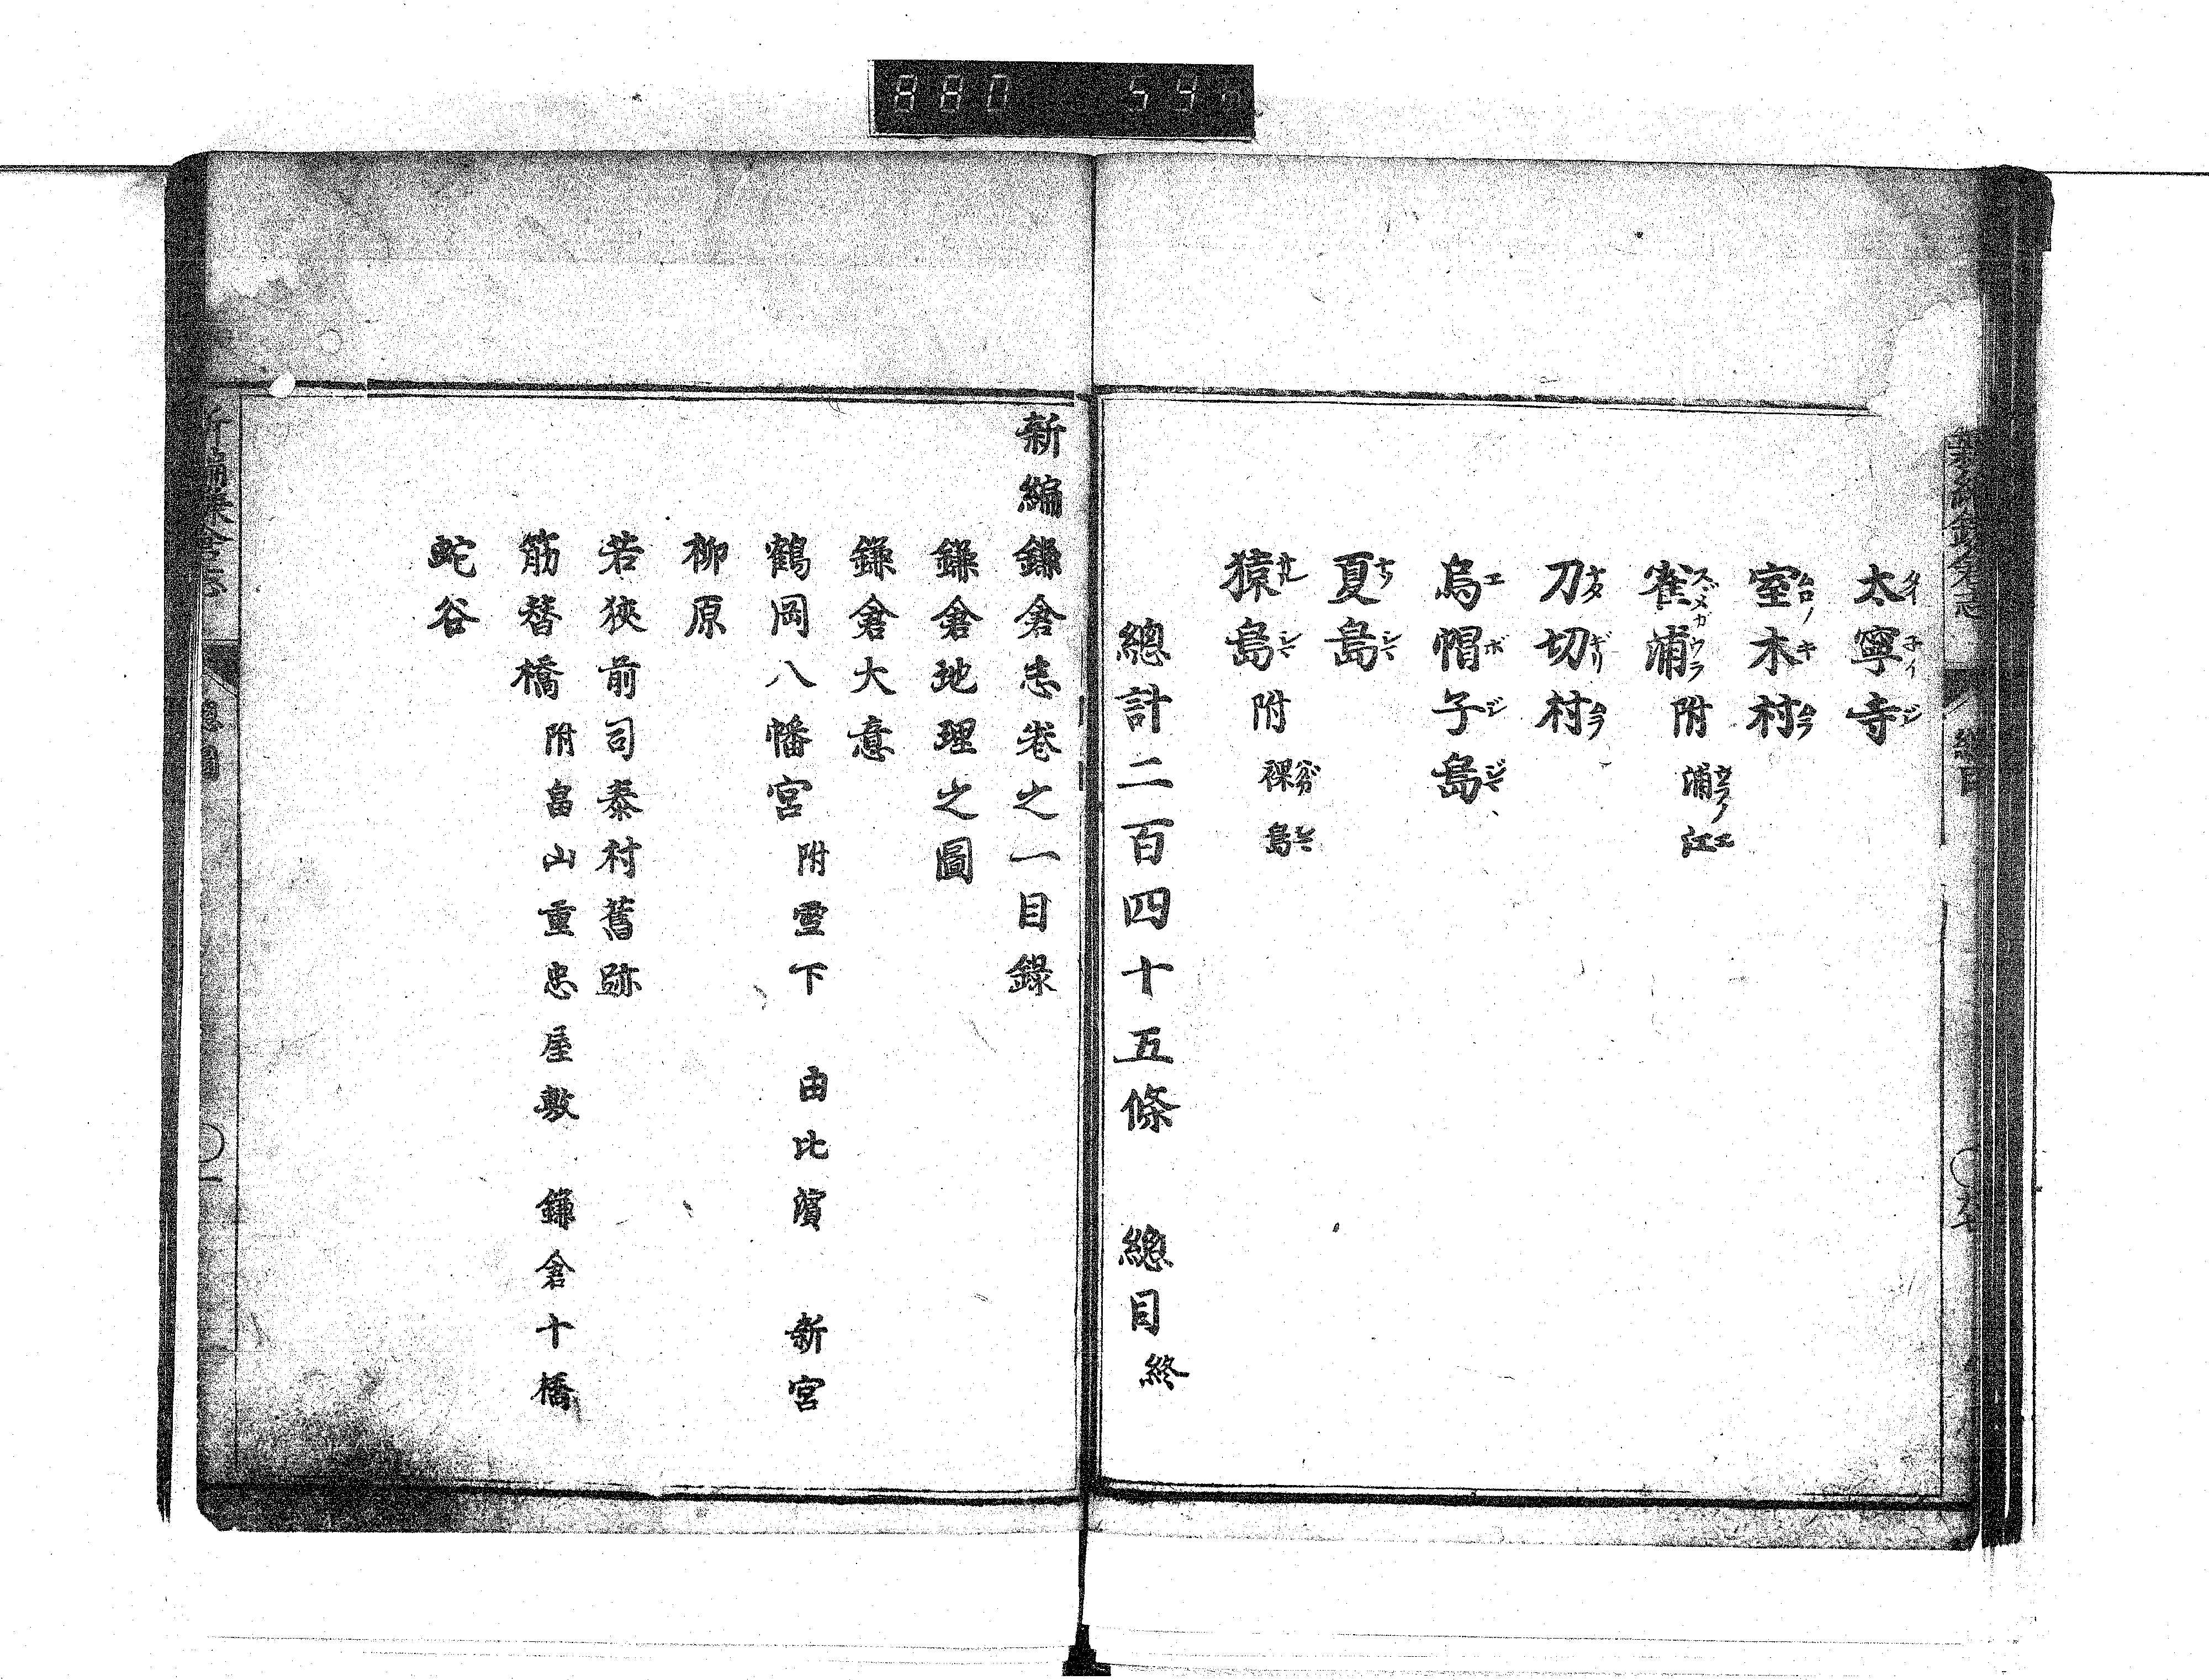 太寧寺
室木村
雀浦附浦江
刀切村
烏帽子島
夏島
猿島附裸島
總計二百四十五條 總目終
新編鎌倉志卷之一目錄
鎌倉地理之圖
鎌倉大意
鶴岡八幡宮附雪下 由比濱 新宮
柳原
若狹前司泰村舊跡
筋替橋附畠山重忠屋敷 鎌倉十橋
蛇谷